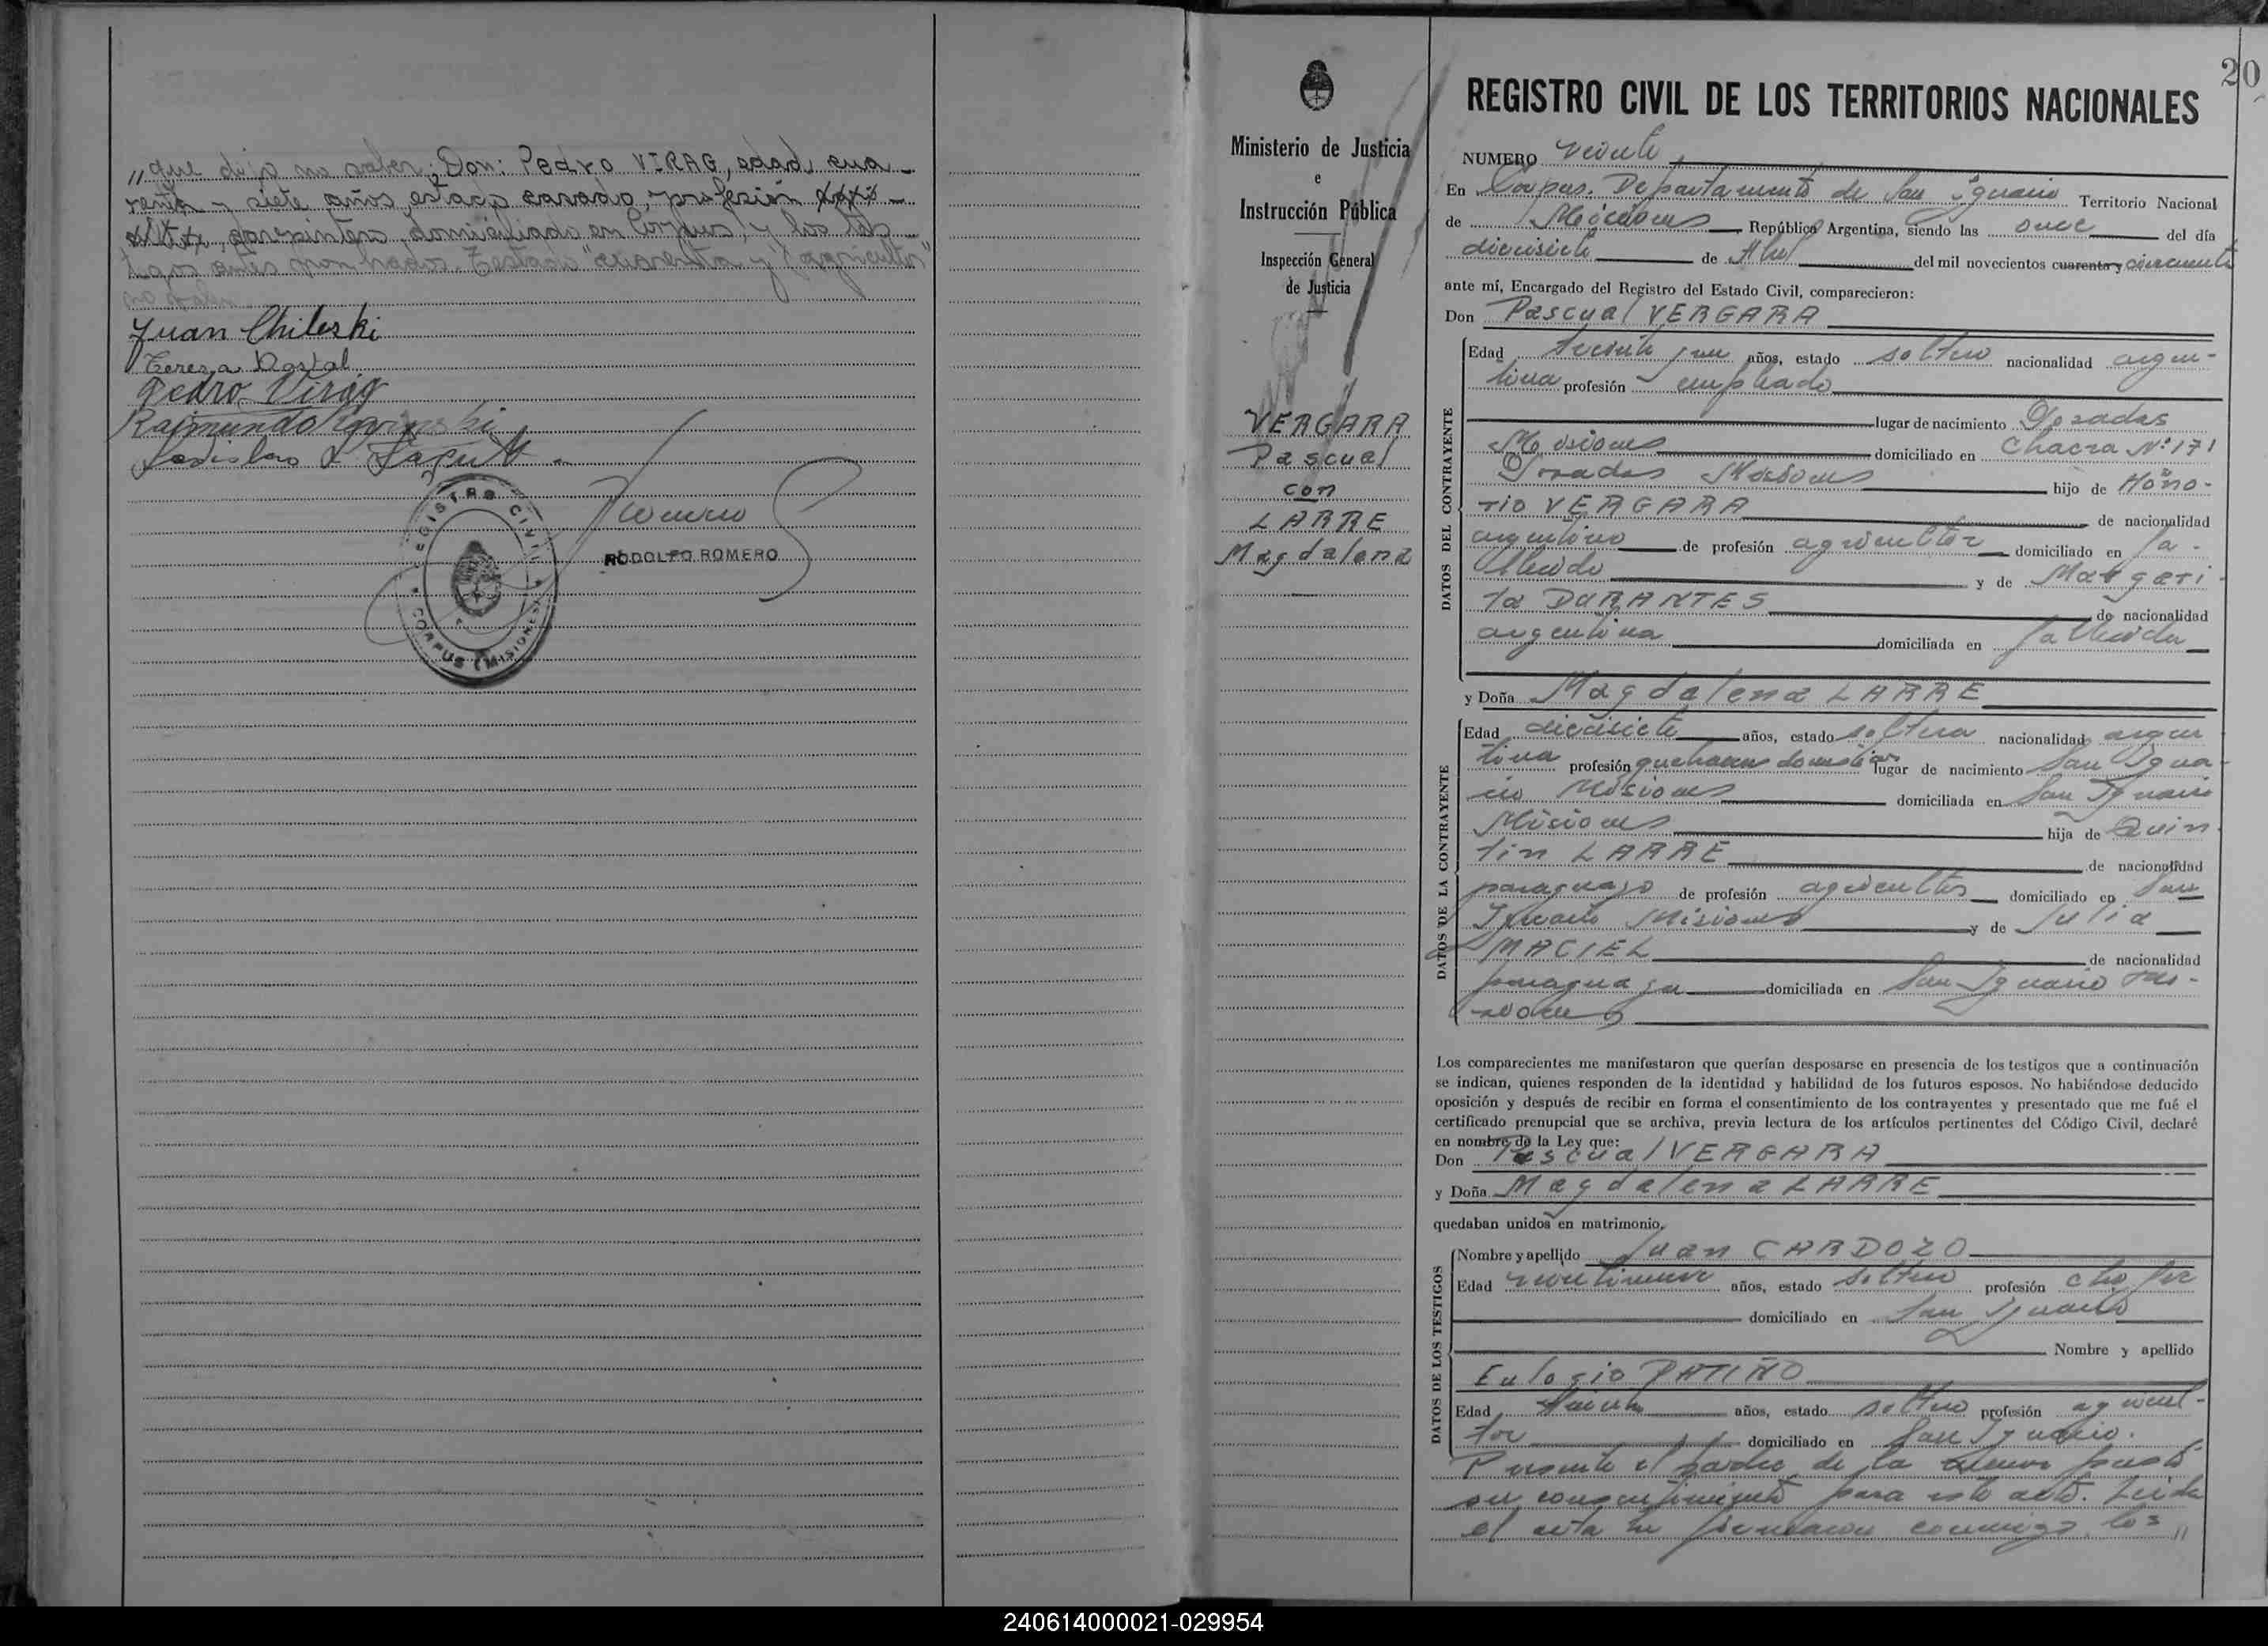 „ que dijo no saber; Don: Pedro VIRAG, edad cua-
renta y siete años, estado casado, profesión
carpintero, domiciliado en Corpus, y los tes-
tigos antes nombrados. Testado "cuarenta y" "agricultor"
no valen
Juan Chileski
Teresa Dostal
Pedro Virág
Raimundo
Ladislao
REGISTRO CIVIL
CORPUS (MISIONES)
Romero
RODOLFO ROMERO
Ministerio de Justicia
e
Instrucción Pública
Inspección General
de Justicia
VERGARA
Pascual
con
LARRE
Magdalena
20
REGISTRO CIVIL DE LOS TERRITORIOS NACIONALES
NUMERO veinte
En Corpus. Departamento de San Ignacio Territorio Nacional
de Misiones República Argentina, siendo las once del día
diecisiete de Abril del mil novecientos cuarenta y cincuenta
ante mí, Encargado del Registro del Estado Civil, comparecieron:
Don Pascual VERGARA
DATOS DEL CONTRAYENTE
Edad años, estado soltero nacionalidad argen-
tina profesión empleado
lugar de nacimiento Posadas
Misiones domiciliado en Chacra Nº 171
Posadas Misiones hijo de Hono-
rio VERGARA de nacionalidad
argentino de profesión agricultor domiciliado en fa-
llecido y de Margari-
ta DURANTES de nacionalidad
argentina domiciliada en fallecida
y Doña Magdalena LARRE
DATOS DE LA CONTRAYENTE
Edad diecisiete años, estado soltera nacionalidad argen
tina profesión quehaceres domésticos lugar de nacimiento San Igna-
cio Misiones domiciliada en San Ignacio
Misiones hija de Quin-
tin LARRE de nacionalidad
paraguayo de profesión agricultor domiciliado en San
Ignacio Misiones y de Julia
MACIEL de nacionalidad
paraguaya domiciliada en San Ignacio Mi-
siones
Los comparecientes me manifestaron que querían desposarse en presencia de los testigos que a continuación
se indican, quienes responden de la identidad y habilidad de los futuros esposos. No habiéndose deducido
oposición y después de recibir en forma el consentimiento de los contrayentes y presentado que me fué el
certificado prenupcial que se archiva, previa lectura de los artículos pertinentes del Código Civil, declaré
en nombre de la Ley que:
Don Pascual VERGARA
y Doña Magdalena LARRE
quedaban unidos en matrimonio,
DATOS DE LOS TESTIGOS
Nombre y apellido Juan CARDOZO
Edad veintinueve años, estado soltero profesión chofer
domiciliado en San Ignacio
Nombre y apellido
Eulogio PATIÑO
Edad treinta años, estado soltero profesión agricul-
tor domiciliado en San Ignacio.
Presente el padre de la menor prestó
su consentimiento para este acto. Leida
el acta la firmaron conmigo los „
240614000021-029954